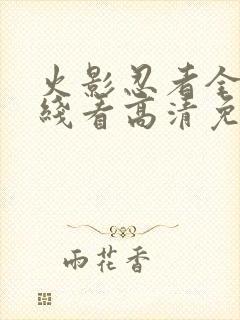 火影忍者全
綫看高清免
雨花香